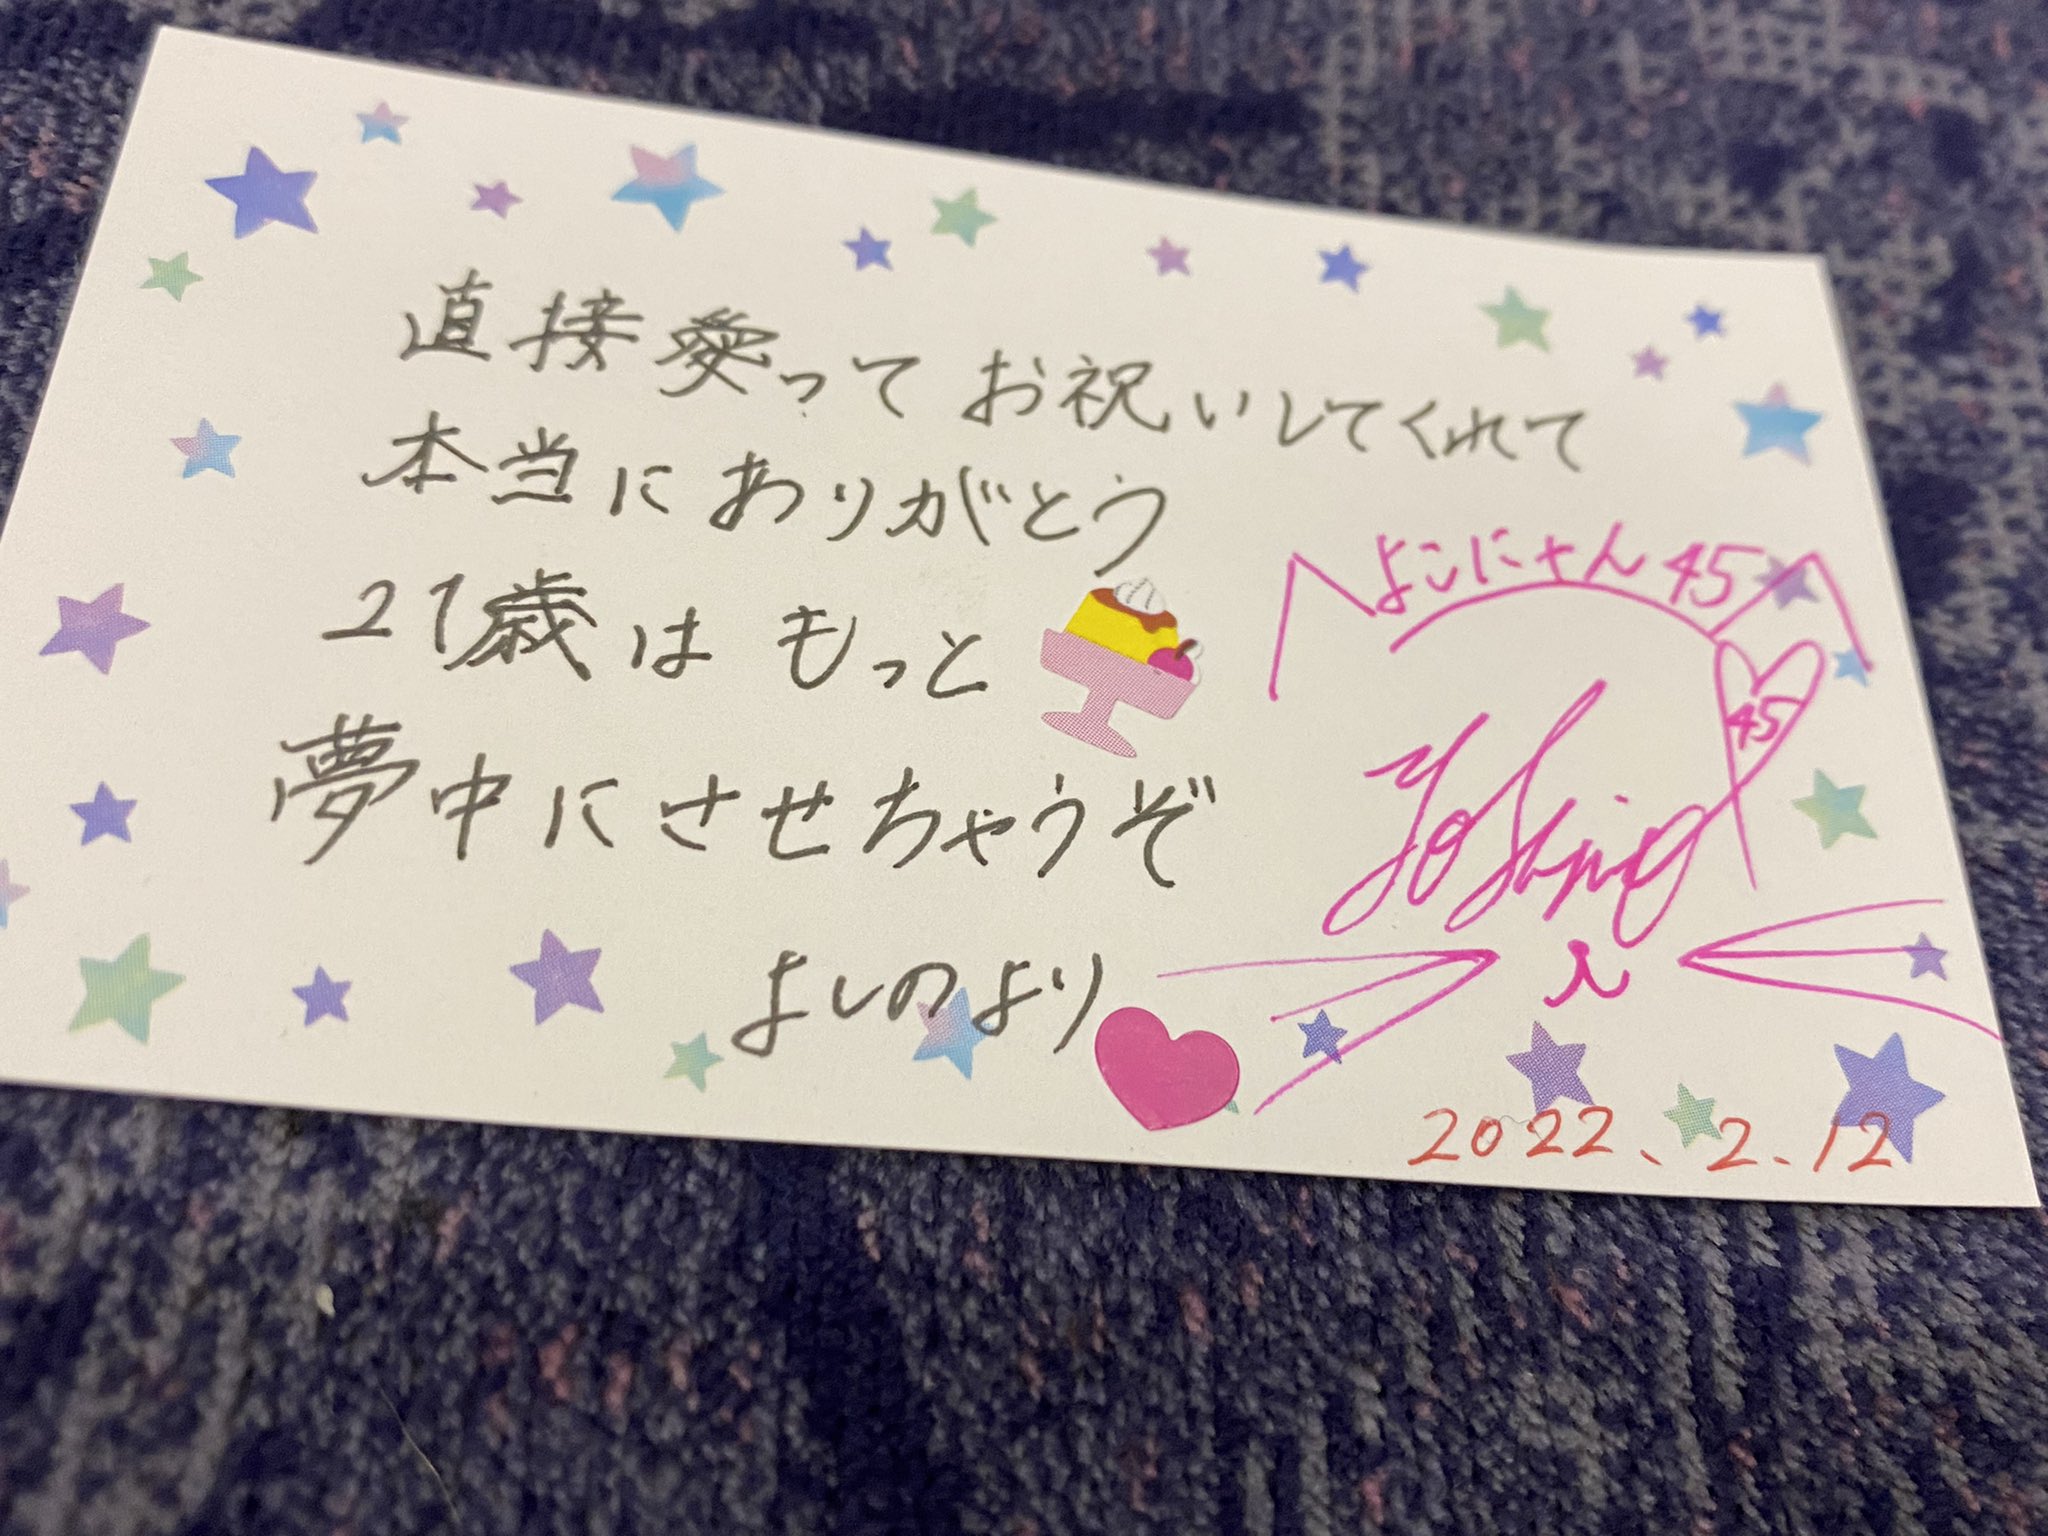 直接愛ってお祝いしてくれて
本当にありがとう
21歳はもっと
夢中にさせちゃうぞ
よしのより
よこにさん45
45
Yoshino
2022.2.12